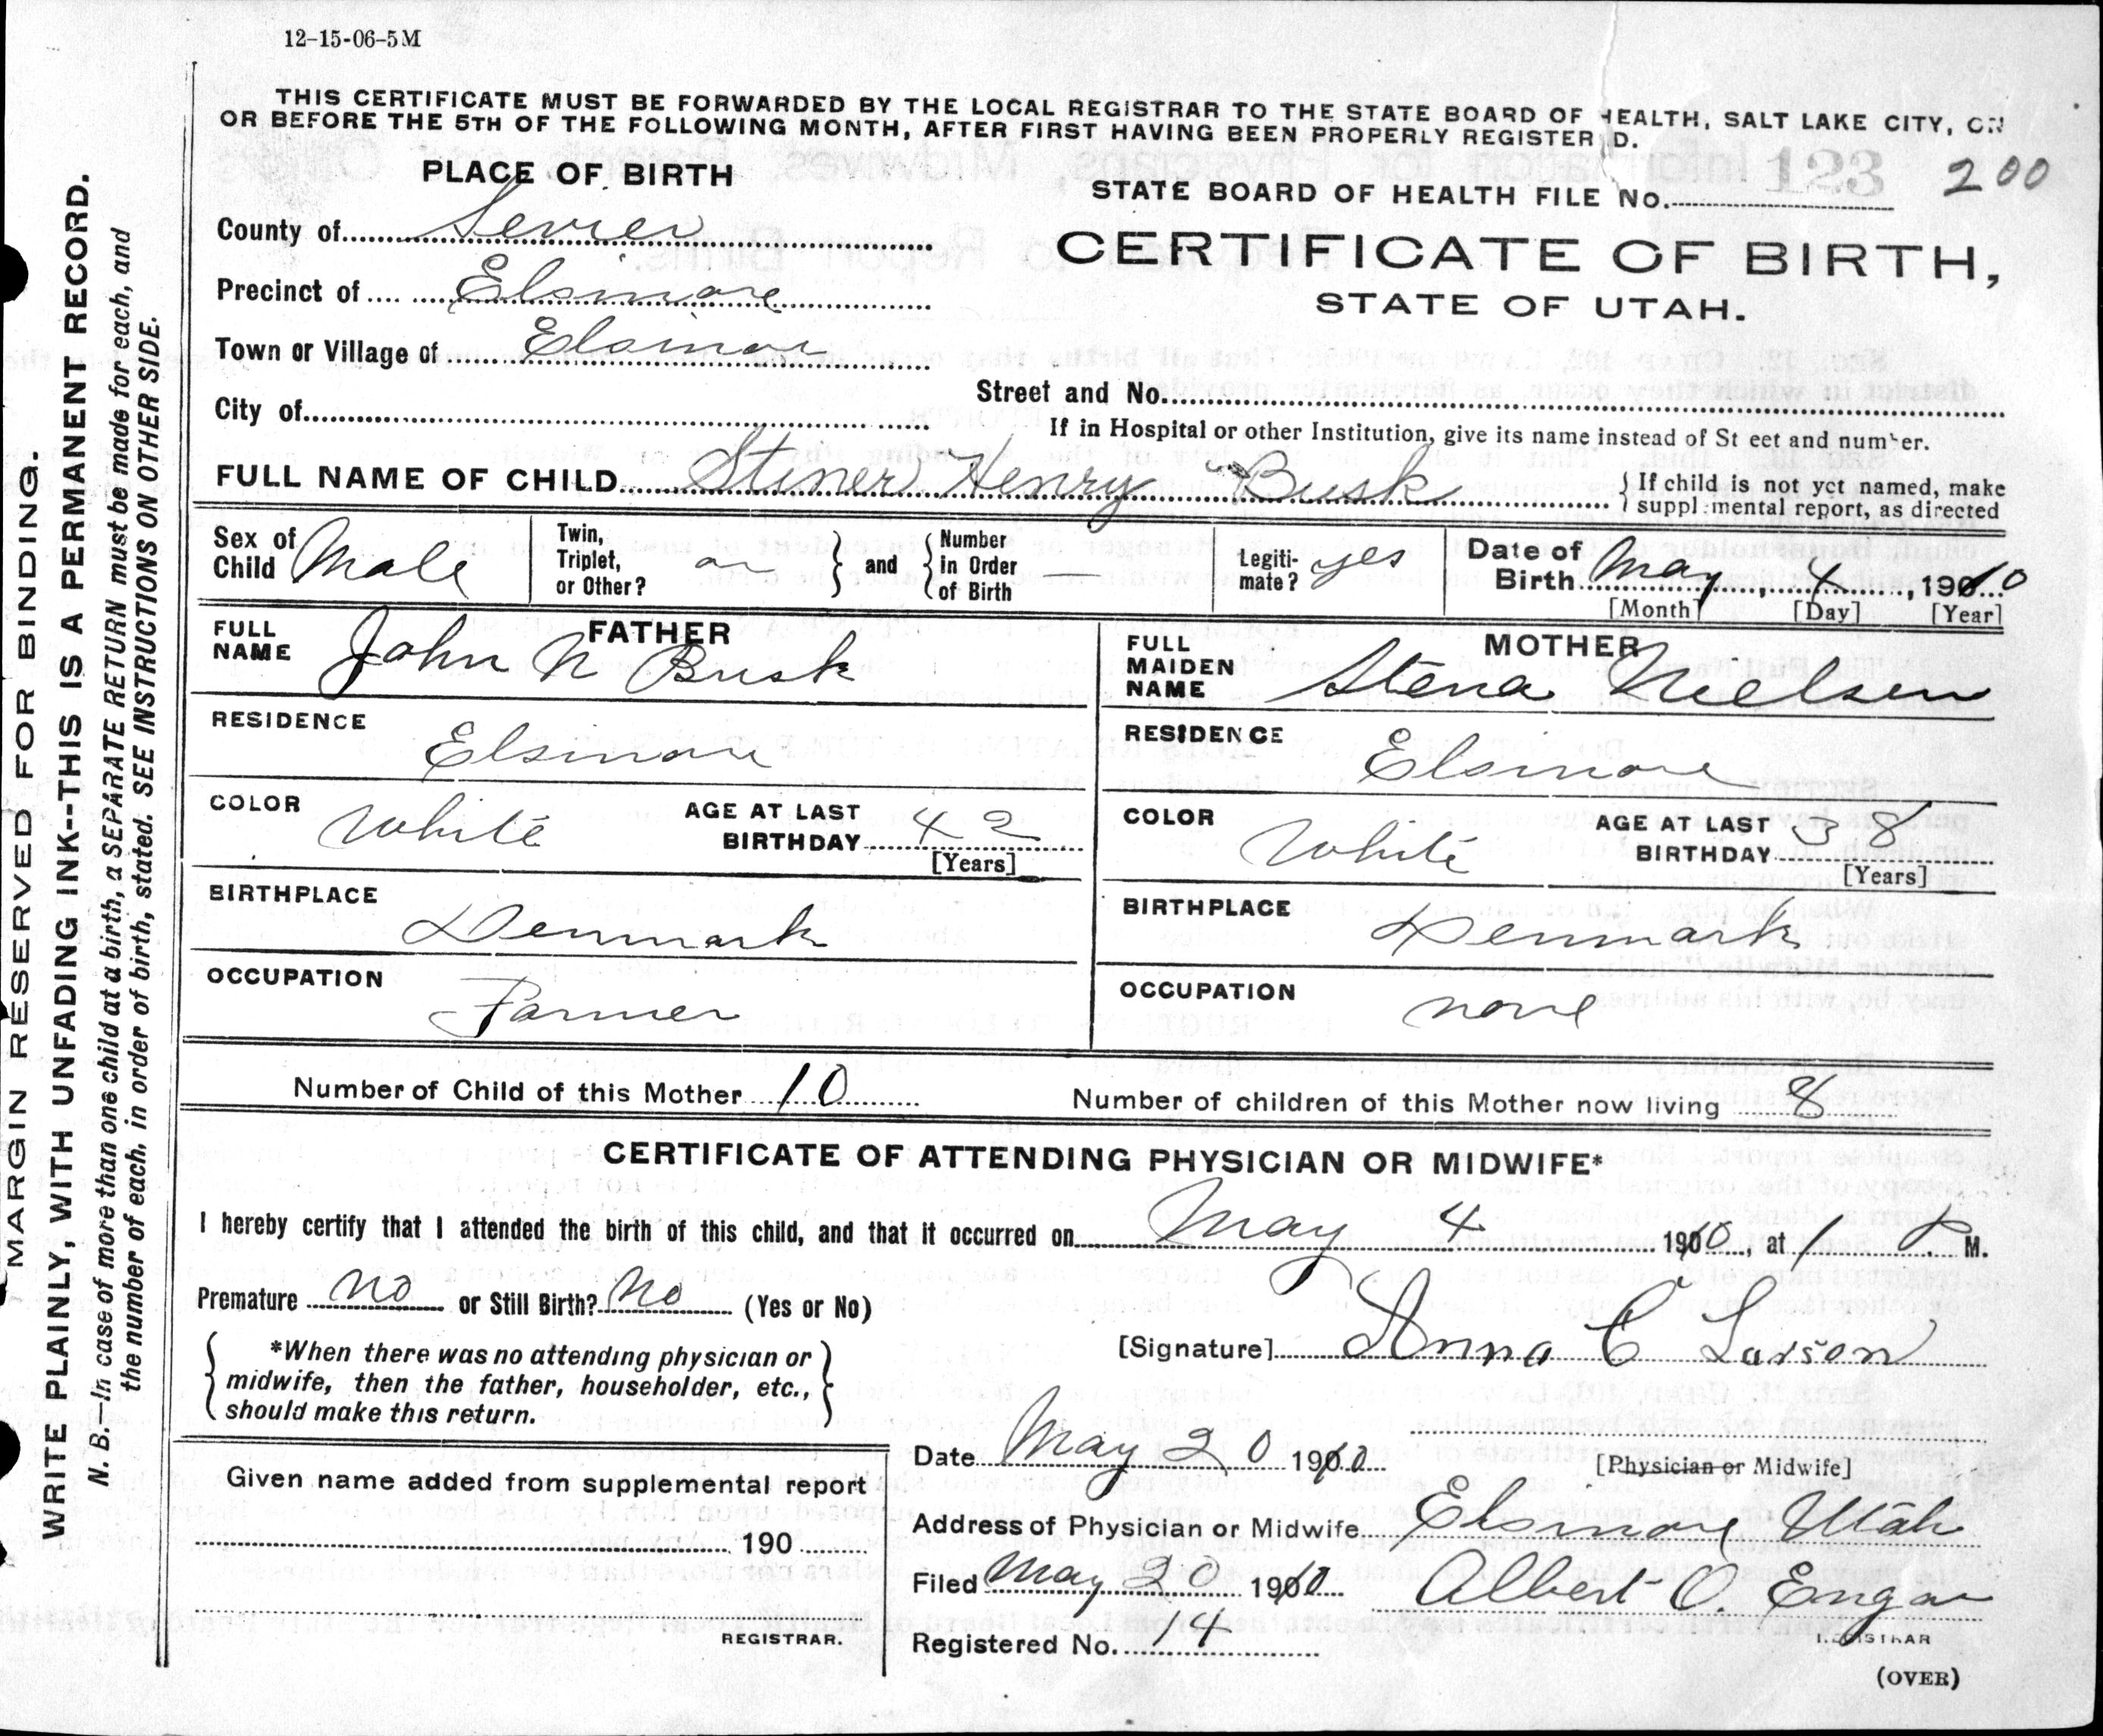 12-15-06-5M
THIS CERTIFICATE MUST BE FORWARDED BY THE LOCAL REGISTRAR TO THE STATE BOARD OF HEALTH, SALT LAKE CITY, ON
OR BEFORE THE 5TH OF THE FOLLOWING MONTH, AFTER FIRST HAVING BEEN PROPERLY REGISTER D.
PLACE OF BIRTH
STATE BOARD OF HEALTH FILE No. 123 200
County of Sevier
CERTIFICATE OF BIRTH,
Precinct of Elsinore
STATE OF UTAH.
Town or Village of Elsinore
Street and No.
City of
If in Hospital or other Institution, give its name instead of St eet and number.
FULL NAME OF CHILD Stiner Henry Busk
If child is not yet named, make
suppl mental report, as directed
Sex of Child Male
Twin, Triplet, or Other?
and
Number in Order of Birth
Legiti-mate? yes
Date of Birth May 4, 1910
[Month] [Day] [Year]
FATHER
FULL NAME John N Busk
MOTHER
FULL MAIDEN NAME Stena Nielsen
RESIDENCE Elsinore
RESIDENCE Elsinore
COLOR White AGE AT LAST BIRTHDAY 42 [Years]
COLOR White AGE AT LAST BIRTHDAY 38 [Years]
BIRTHPLACE Denmark
BIRTHPLACE Denmark
OCCUPATION Farmer
OCCUPATION none
Number of Child of this Mother 10
Number of children of this Mother now living 8
CERTIFICATE OF ATTENDING PHYSICIAN OR MIDWIFE*
I hereby certify that I attended the birth of this child, and that it occurred on May 4 1910, at 1 P. M.
Premature no or Still Birth? No (Yes or No)
*When there was no attending physician or
midwife, then the father, householder, etc.,
should make this return.
[Signature] Anna C Larson
Date May 20 1910
[Physician or Midwife]
Given name added from supplemental report
Address of Physician or Midwife Elsinore Utah
190
Filed May 20 1910 Albert O. Engar
REGISTRAR
REGISTRAR.
Registered No. 14
(OVER)
MARGIN RESERVED FOR BINDING.
WRITE PLAINLY, WITH UNFADING INK--THIS IS A PERMANENT RECORD.
N. B.—In case of more than one child at a birth, a SEPARATE RETURN must be made for each, and
the number of each, in order of birth, stated. SEE INSTRUCTIONS ON OTHER SIDE.